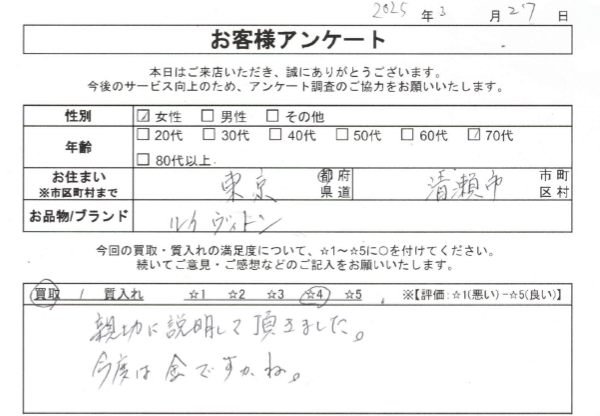 2025年3月27日
お客様アンケート
本日はご来店いただき、誠にありがとうございます。
今後のサービス向上のため、アンケート調査のご協力をお願いいたします。
性別 ☑女性 □男性 □その他
年齢 □20代 □30代 □40代 □50代 □60代 ☑70代
□80代以上
お住まい ※市区町村まで 東京 都府県道 清瀬市 市町区村
お品物/ブランド ルイ ヴィトン
今回の買取・質入れの満足度について、☆1～☆5に○を付けてください。
続いてご意見・ご感想などのご記入をお願いいたします。
買取 / 質入れ ☆1 ☆2 ☆3 ☆4 ☆5 ※【評価:☆1(悪い)－☆5(良い)】
親切に説明して頂きました。
今度は金ですかね。